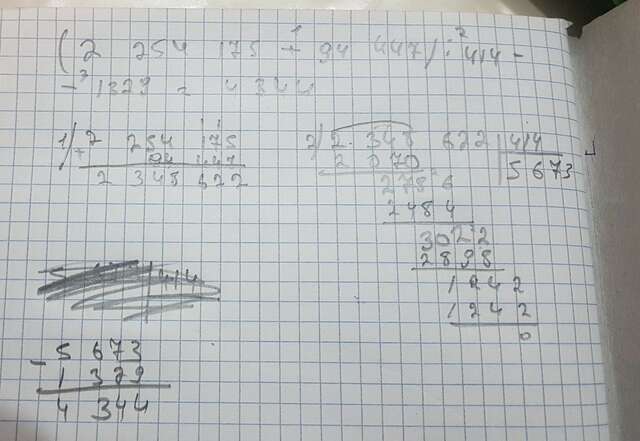 (2 254 175 + 94 447) : 414 -
- 1329 = 4344
1) + 2 254 175
94 447
2 348 622
2) 2 348 622 | 414
2 070 | 5 673
278 6
248 4
30 22
28 98
1 242
1 242
0
- 5 673
1 329
4 344